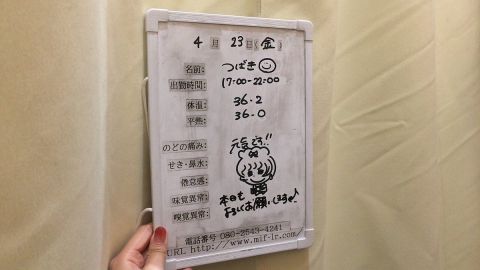 4月 23日(金)
名前: つばき
出勤時間: 17:00-22:00
体温: 36.2
平熱: 36.0
のどの痛み:
元気です!!
せき・鼻水:
倦怠感:
味覚異常: 本日も
嗅覚異常: よろしくお願いします♪
電話番号 080-2543-4241
URL http://www.mif-lr.com/